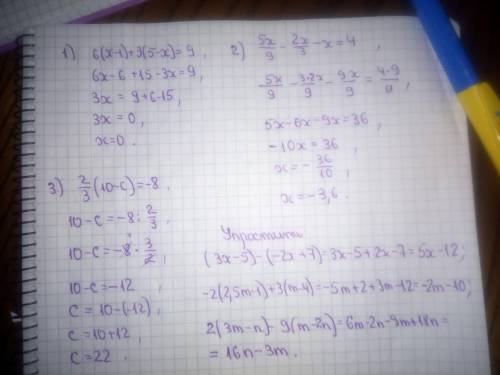 1) 6(x-1)+3(5-x)=9,
6x-6+15-3x=9,
3x=9+6-15,
3x=0,
x=0.
2) 5x/9 - 2x/3 - x = 4,
5x/9 - 3·2x/9 - 9x/9 = 4·9/9,
5x-6x-9x=36,
-10x=36,
x=-36/10,
x=-3,6.
3) 2/3(10-c)=-8,
10-c=-8:2/3,
10-c=-8·3/2,
10-c=-12,
c=10-(-12),
c=10+12,
c=22.
Упростить
(3x-5)-(-2x+7)=3x-5+2x-7=5x-12;
-2(2,5m-1)+3(m-4)=-5m+2+3m-12=-2m-10;
2(3m-n)-9(m-2n)=6m-2n-9m+18n=
=16n-3m.